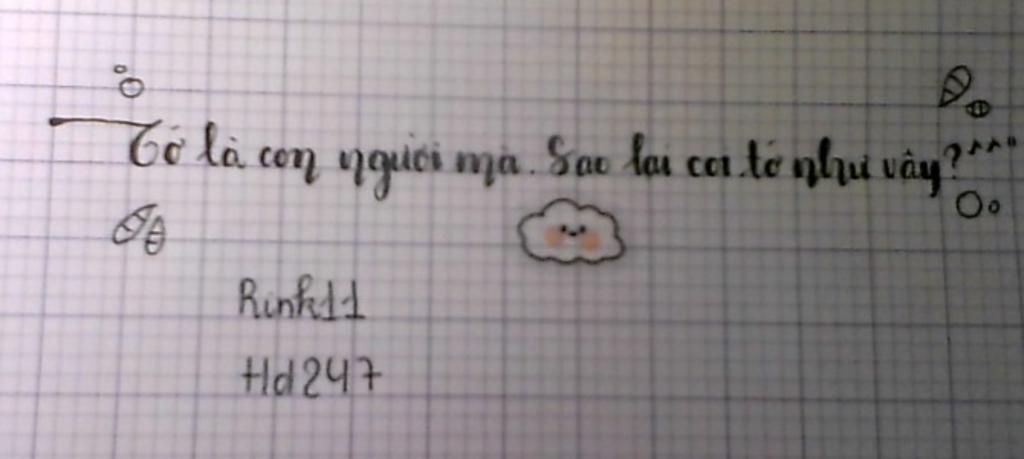 Tớ là con người mà. Sao lại coi tớ như vậy? ^^"
Rink11
Hd247